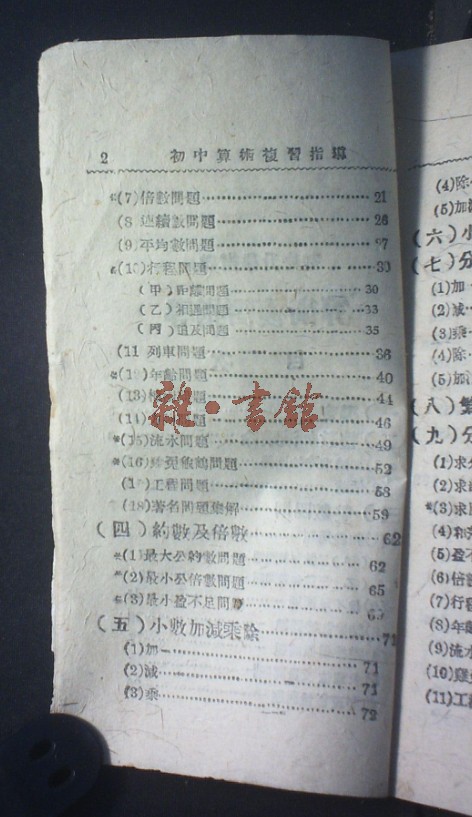 2 初中算術複習指導
*(7)倍數問題 21
(8 連續數問題 26
(9)平均數問題 27
*(10)行程問題 30
(甲)距離問題 30
(乙)相遇問題 33
(丙)追及問題 35
(11 列車問題 36
年齡問題 40
44
46
*(15)流水問題 49
*(16) 問題 52
工程問題 58
(18)著名問題集解 59
(四)約數及倍數 62
*(1)最大公約數問題 62
*(2)最小公倍數問題 65
*(3)最小盈不足問題
(五)小數加減乘除 71
(1)加 71
(2)減 71
(3)乘 72
雜·書館
(4)除
(5)加減
(六)小
(七)分
(1)加
(2)減
(3)乘
(4)除
(5)加
(八)繁
(九)分
(1)求
(2)求
*(3)求
(4)和
(5)盈
(6)倍
(7)行程
(8)年齡
(9)流水
(10)雞
(11)工